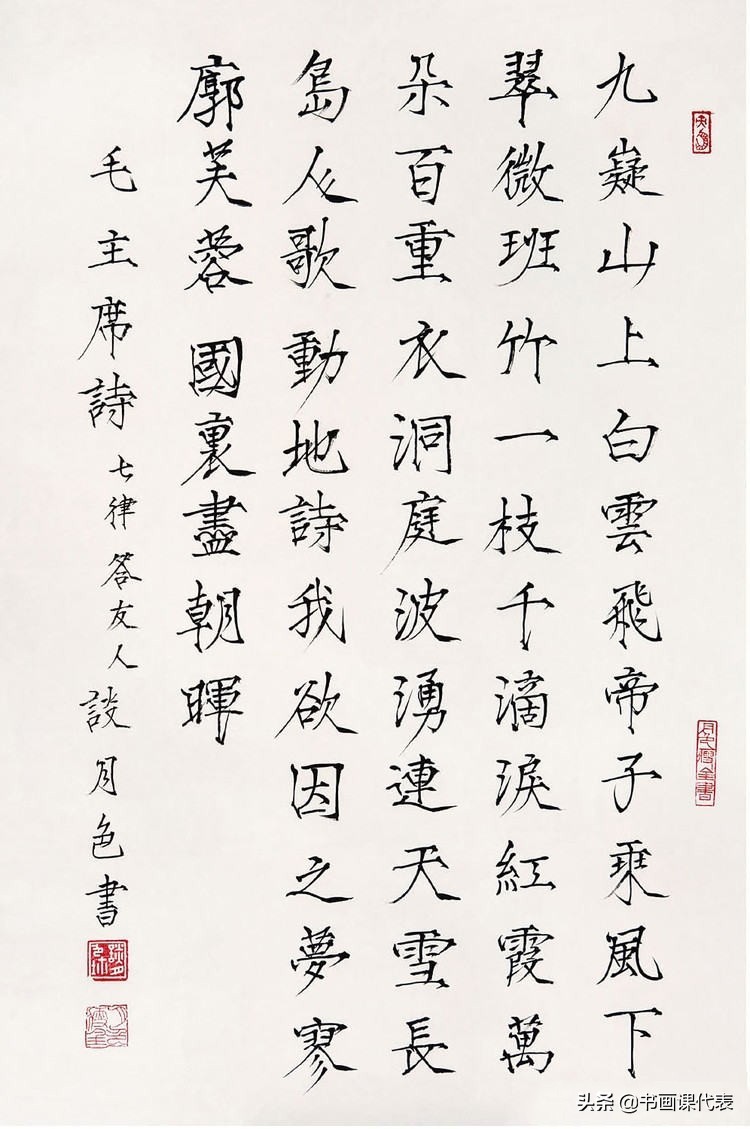 九嶷山上白雲飛帝子乘風下
翠微班竹一枝千滴淚紅霞萬
朵百重衣洞庭波湧連天雪長
島人歌動地詩我欲因之夢寥
廓芙蓉國裏盡朝暉
毛主席詩七律答友人談月色書
月色瘦金書
头条 @书画课代表